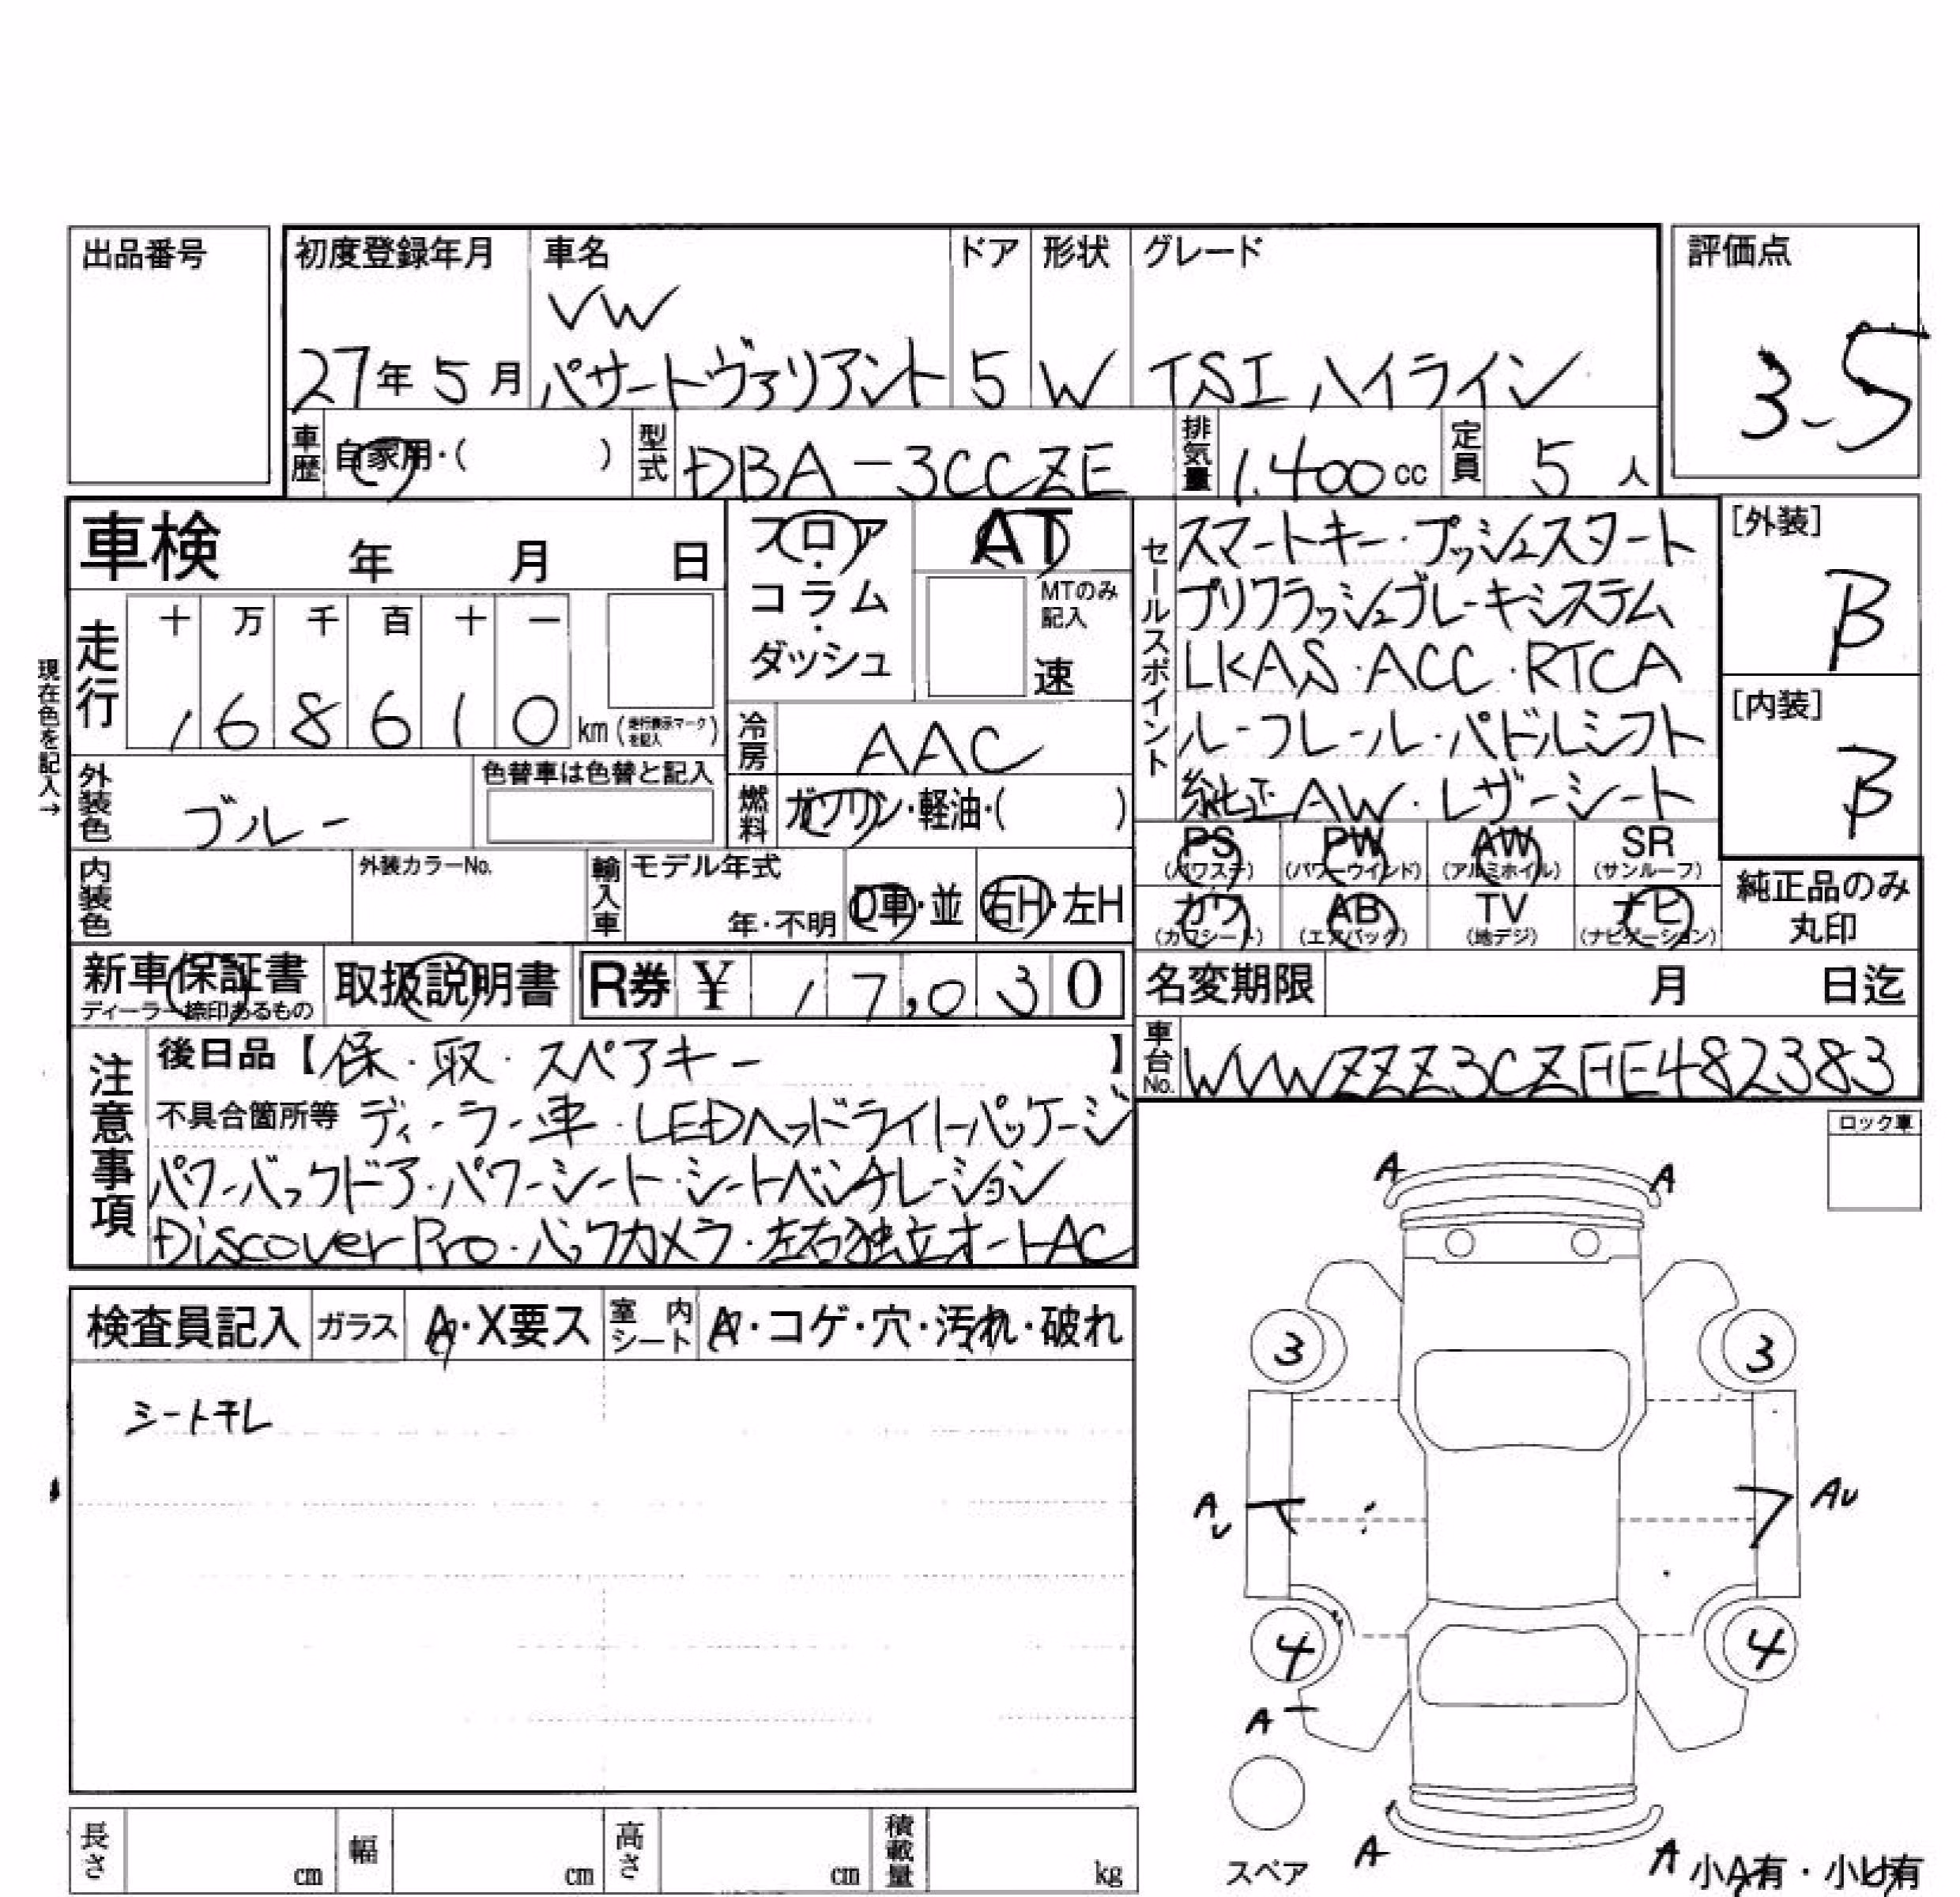 出品番号
初度登録年月 車名 ドア 形状 グレード 評価点
VW
27年5月 パサートヴァリアント 5 W TSI ハイライン 3.5
車歴 自家用・( ) 型式 DBA-3CCZE 排気量 1.400cc 定員 5人
車検 年 月 日
フロア・コラム・ダッシュ
AT
MTのみ記入
速
セールスポイント
スマートキー・プッシュスタート
プリクラッシュブレーキシステム
LKAS・ACC・RTCA
ルーフレール・パドルシフト
純正AW・レザーシート
[外装]
B
[内装]
B
現在色を記入→
走行 十 万 千 百 十 一
1 6 8 6 1 0 km (走行表示マークを記入)
冷房 AAC
外装色 ブルー 色替車は色替と記入
燃料 ガソリン・軽油・( )
PS (パワステ) PW (パワーウインド) AW (アルミホイル) SR (サンルーフ)
カワ (カワシート) AB (エアバッグ) TV (地デジ) ナビ (ナビゲーション)
純正品のみ
丸印
内装色 外装カラーNo. 輸入車 モデル年式 年・不明 D車・並 右H・左H
新車保証書 取扱説明書 R券 ¥ 17,030
ディーラー捺印あるもの
名変期限 月 日迄
車台No. WVWZZZ3CZFE482383
注意事項
後日品【保・取・スペアキー】
不具合箇所等 ディーラー車・LEDヘッドライトパッケージ
パワーバックドア・パワーシート・シートベンチレーション
Discover Pro・バックカメラ・左右独立オートAC
ロック車
検査員記入 ガラス A・X要ス 室内シート A・コゲ・穴・汚れ・破れ
A A
3 3
シート干レ
AU AU
4 4
A
スペア
A A
小A有・小U有
長さ cm 幅 cm 高さ cm 積載量 kg